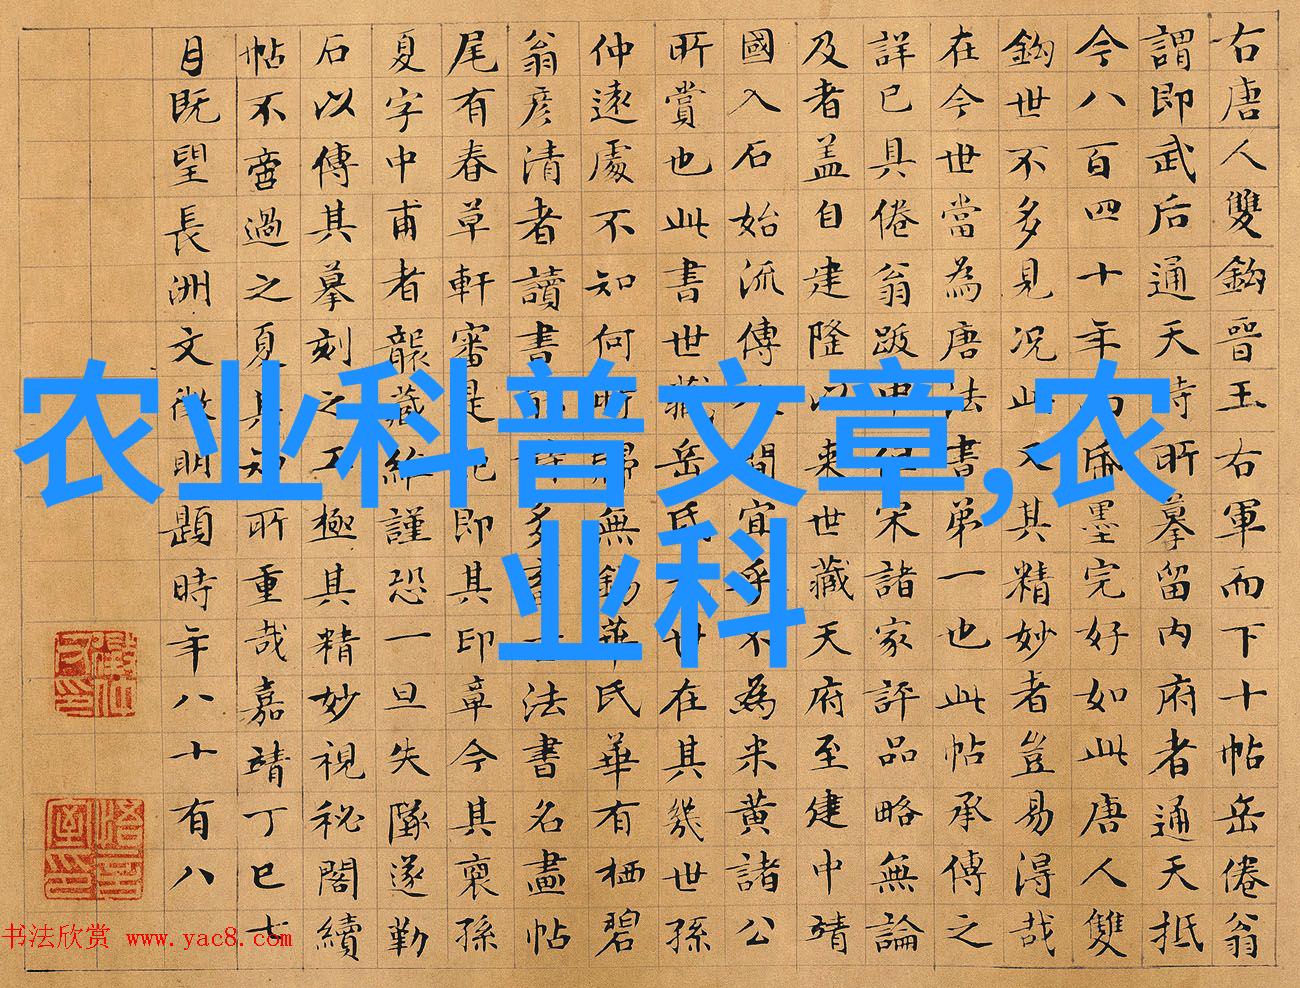 右唐人雙鈎晉王右軍而下十帖岳倦翁
謂即武后通天時所摹留内府者通天抵
今八百四十年墨完好如此唐人雙
鈎世不多見况此又其精妙者豈易得哉
在今世當為唐法書第一也此帖承傳之
詳已具倦翁跋宋諸家評品略無論
及者盖自建隆以來世藏天府至建中靖
國入石始流傳人間宜乎不為米黃諸公
所賞也此書世藏岳氏世在其幾世孫
仲遠處不知何時歸無錫華氏華有栖碧
翁彥清者讀書多法書名畫帖
尾有春草軒審是即其印章今其裔孫
夏字中甫者襲藏維謹恐一旦失墜遂勤
石以傳其摹刻之工極其精妙視秘閣續
帖不啻過之夏其知所重哉嘉靖丁巳七
月既望長洲文徵明題時年八十有八
农业科普文章,农
业科
书法欣赏 www.yac8.com